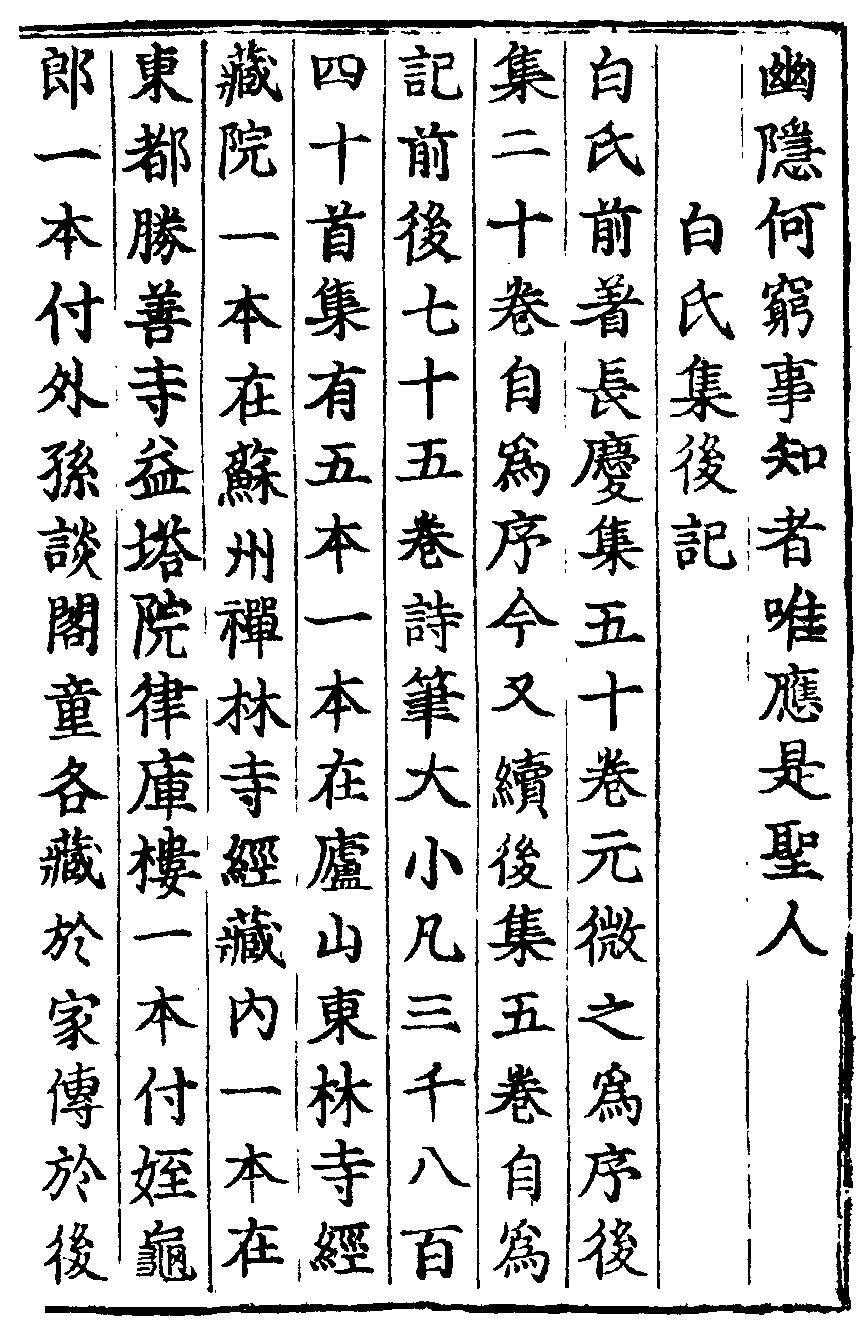 幽隱何窮事知者唯應是聖人
白氏集後記
白氏前著長慶集五十卷元微之爲序後
集二十卷自爲序今又續後集五卷自爲
記前後七十五卷詩筆大小凡三千八百
四十首集有五本一本在廬山東林寺經
藏院一本在蘇州禪林寺經藏內一本在
東都勝善寺益塔院律庫樓一本付姪龜
郎一本付外孫談閣童各藏於家傳於後